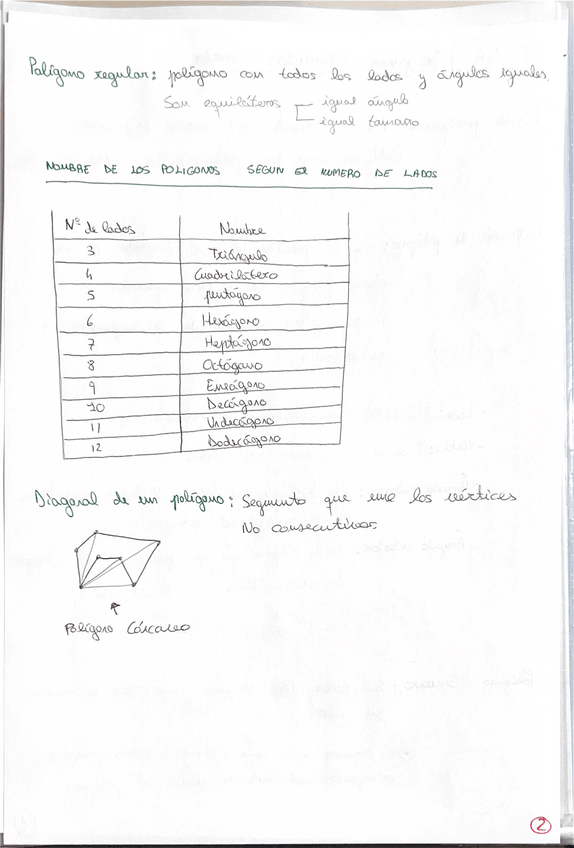 Polígono regular: polígono con todos los lados y ángulos iguales.
Son equiláteros igual ángulo
igual tamaño
NOMBRE DE LOS POLIGONOS SEGUN EL NUMERO DE LADOS
Nº de lados Nombre
3 Triángulo
4 Cuadrilátero
5 pentágono
6 Hexágono
7 Heptágono
8 Octógano
9 Eneágono
10 Decágono
11 Undecágono
12 Dodecágono
Diagonal de un polígono: Segmento que une los vértices
No consecutivos
Polígono Cóncavo
2